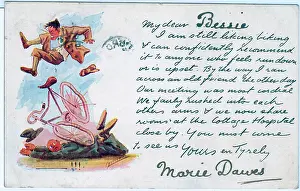 My dear Bessie
I am still liking biking
& can confidently recommend
it to anyone who feels rundown
or is upset. By the way I ran
across an old friend the other day
Our meeting was most cordial
We fairly rushed into each
others arms & we now share
rooms at the Cottage Hospital
close by. You must come
to see us Yours entyrely
Marie Dawes